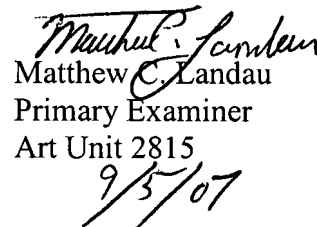 Matthew C. Landau
Matthew C. Landau
Primary Examiner
Art Unit 2815
9/5/07